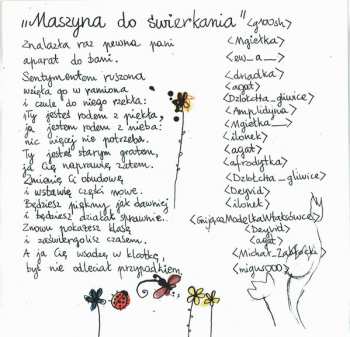 „Maszyna do świerkania” <groosh>
Znalazła raz pewna pani <Mgiełka>
aparat do bani. <ew_a__>
Sentymentem ruszona <driadka>
wzięła go w ramiona <agat>
i czule do niego rzekła: <Dzlotcha_gliwice>
„Ty jesteś rodem z piekła, <Amplidyna>
ja jestem rodem z nieba: <Mgiełka__>
nic więcej nie potrzeba. <ilonek>
Ty jesteś starym gratem, <agat>
ja Cię naprawię zatem. <afrodytka>
Zmienię Ci obudowę <Dzlotcha_gliwice>
i wstawię części nowe. <Deyvid>
Będziesz piękny jak dawniej <ilonek>
i będziesz działał sprawnie.
Znowu pokażesz klasę <Deyvid>
i zaświergolisz czasem. <agat>
A ja Cię wsadzę w klatkę, <Michał_Ząbkacki>
byś nie odleciał przypadkiem. <migus000>